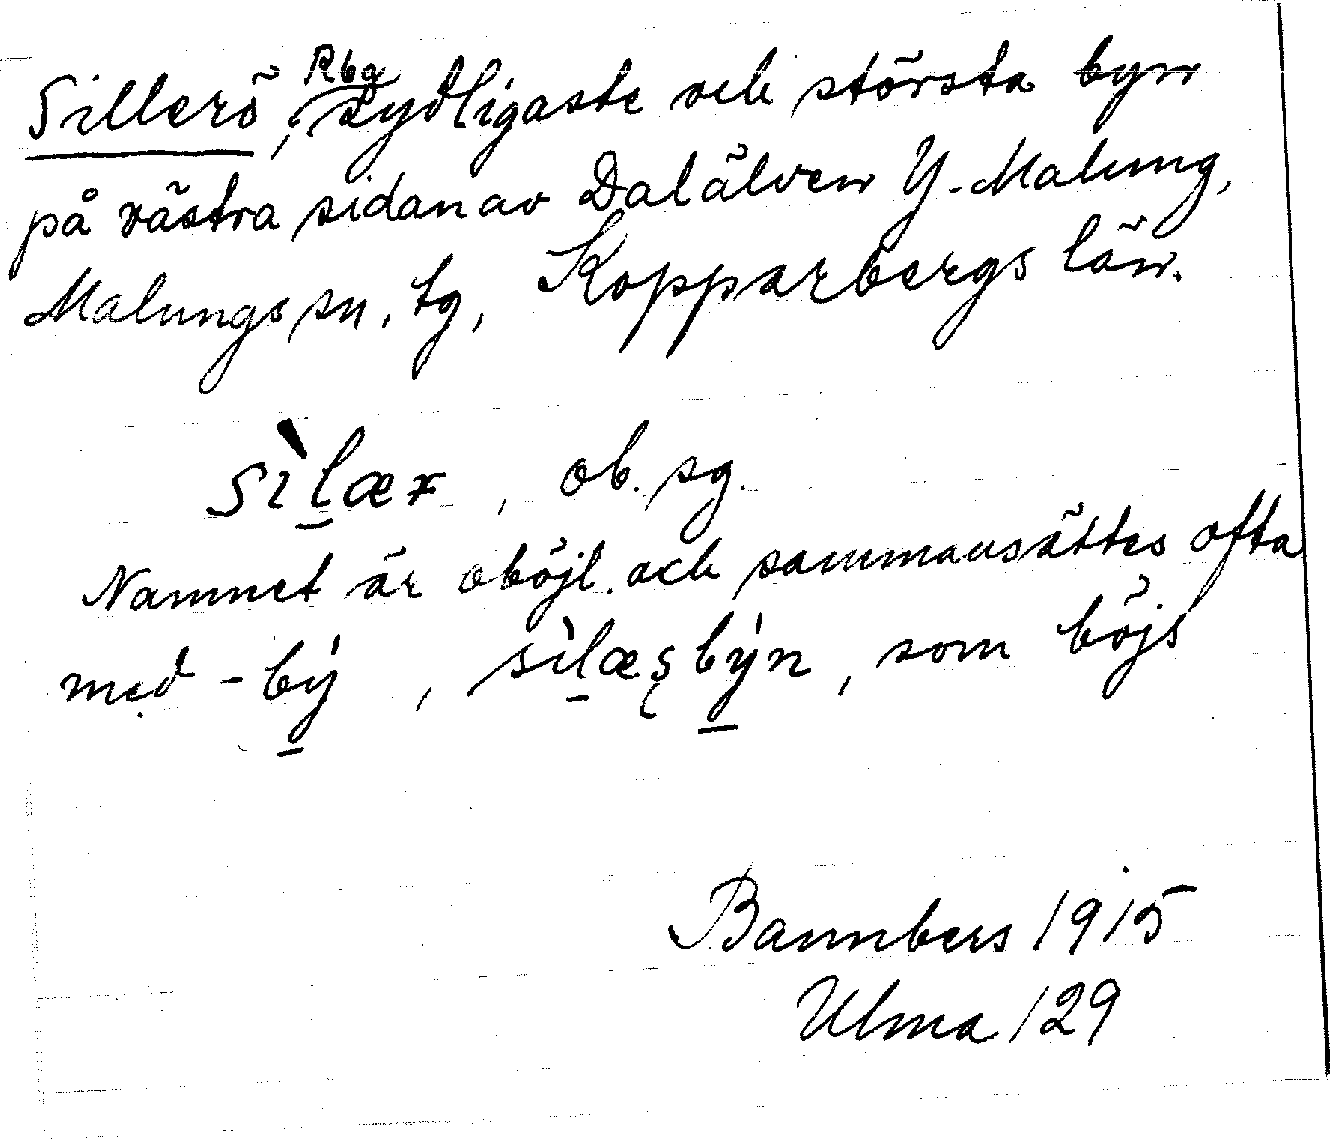 Sillerö, Rbg sydligaste och största byn
på västra sidan av Dalälven Y. Malung,
Malungs sn. tg, Kopparbergs län.
sìlær, ob. sg.
Namnet är oböjl. och sammansättes ofta
med -bý, sìlæsbýn, som böjs
Bannbers 1915
Ulma 129